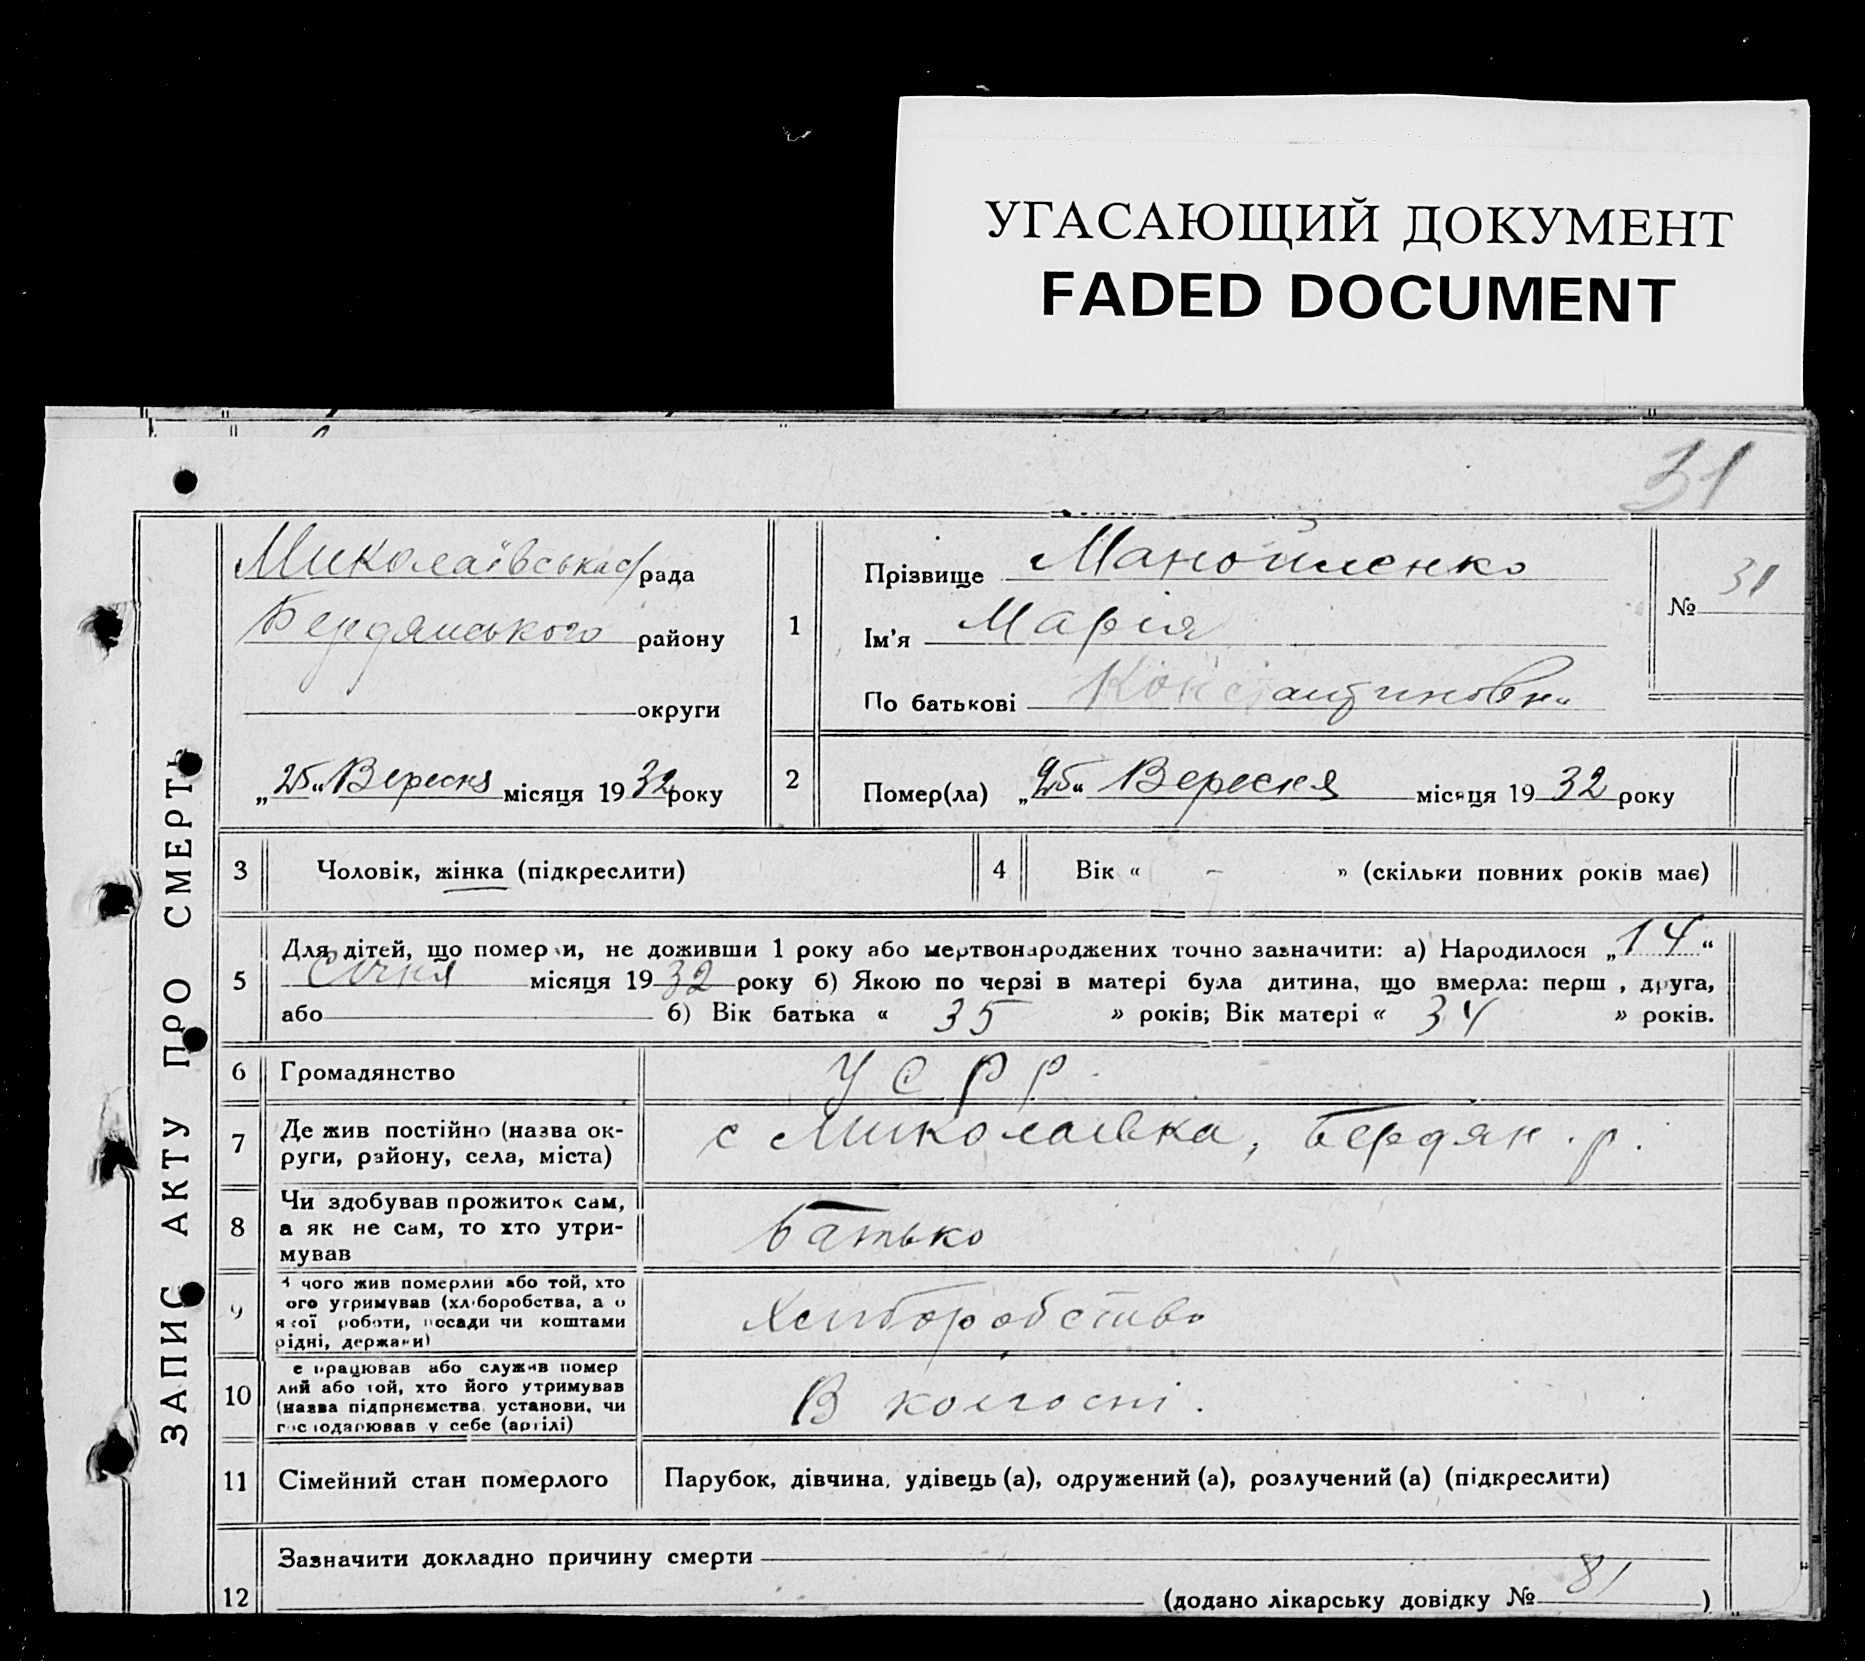 УГАСАЮЩИЙ ДОКУМЕНТ
FADED DOCUMENT
31
ЗАПИС АКТУ ПРО СМЕРТЬ
Миколаївська с/рада
Бердянського району
округи
„25“ Вересня місяця 1932 року
1
Прізвище Манойленко
Ім'я Марія
По батькові Константиновн
№ 31
2
Помер(ла) „25“ Вересня місяця 1932 року
3 Чоловік, жінка (підкреслити)
4 Вік « - » (скільки повних років має)
5 Для дітей, що померли, не доживши 1 року або мертвонароджених точно зазначити: а) Народилося „14“
Січня місяця 1932 року б) Якою по черзі в матері була дитина, що вмерла: перш , друга,
або б) Вік батька « 35 » років; Вік матері « 34 » років.
6 Громадянство УСРР
7 Де жив постійно (назва ок-
руги, району, села, міста)
с Миколаівка, Бердян. р.
8 Чи здобував прожиток сам,
а як не сам, то хто утри-
мував
батько
9 З чого жив померлий або той, хто
ого утримував (хліборобства, а о
якої роботи, посади чи коштами
рідні, держави)
Хліборобство
10 е працював або служив помер
лий або той, хто його утримував
(назва підприємства, установи, чи
господарював у себе (артілі)
В колгоспі.
11 Сімейний стан померлого Парубок, дівчина, удівець (а), одружений (а), розлучений (а) (підкреслити)
12 Зазначити докладно причину смерти
(додано лікарську довідку № 81 )